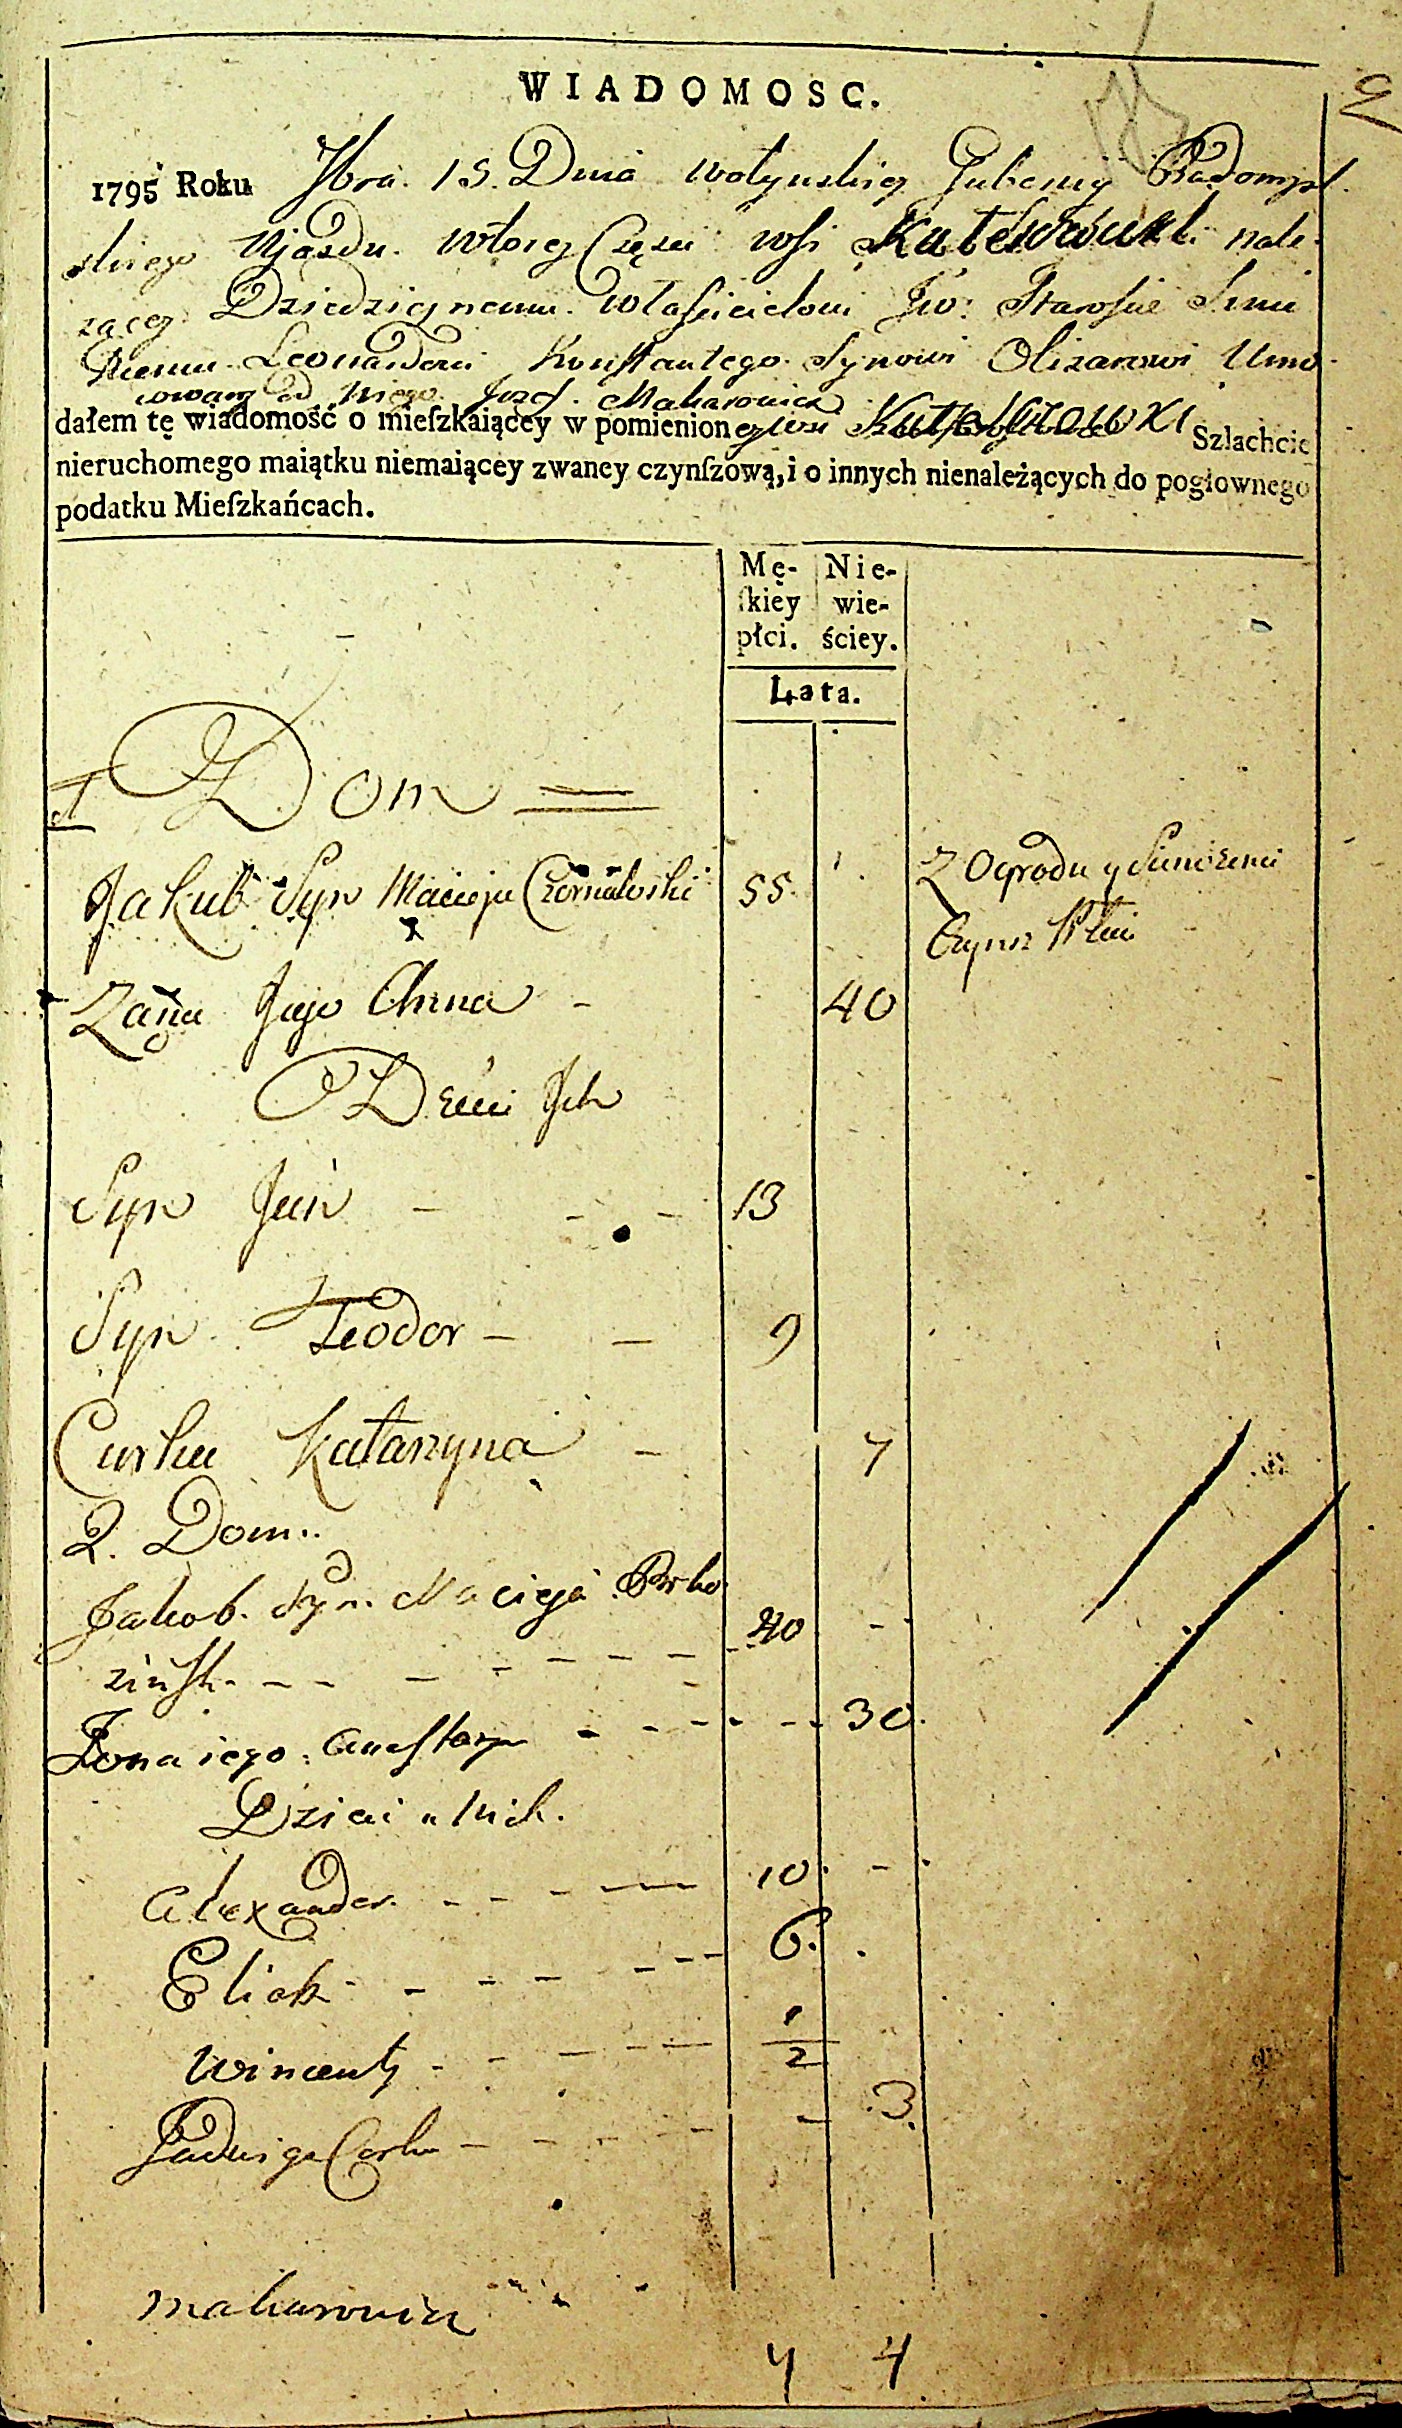 WIADOMOSC.
1795 Roku 15. Dnia Wołynskiey Gubernij Radomysl
skiego Ujazdu. wtorey Częsci wsi nale-
zącey Dziedzicznemu Włascicielowi Jw: Staroscie
Leonardowi Konstantego Synowi Olizarowi Umo-
cowany od Niego Jozef Makarowicz
dałem tę wiadomość o mieſzkaiącey w pomienioney wsi Szlachcie
nieruchomego maiątku niemaiącey zwaney czynſzową, i o innych nienależących do pogłownego
podatku Mieſzkańcach.
Mę- Nie-
ſkiey wie-
płci. ściey.
Lata.
1 Dom
Jakub Syn Macieja 55 Z Ogrodu y
Czynsz
Zana Jego Anna 40
Dzeci Jch
Syn Jan 13
Syn Teodor 9
Curka Katarzyna 7
2. Dom
Jakob. Syn. Macieja 40
Zona iego 30
Dzieci u Nich.
Alexander 10
Eliasz 6.
Wincenty 1/2
Jadwiga Corka 3.
Makarowicz
4